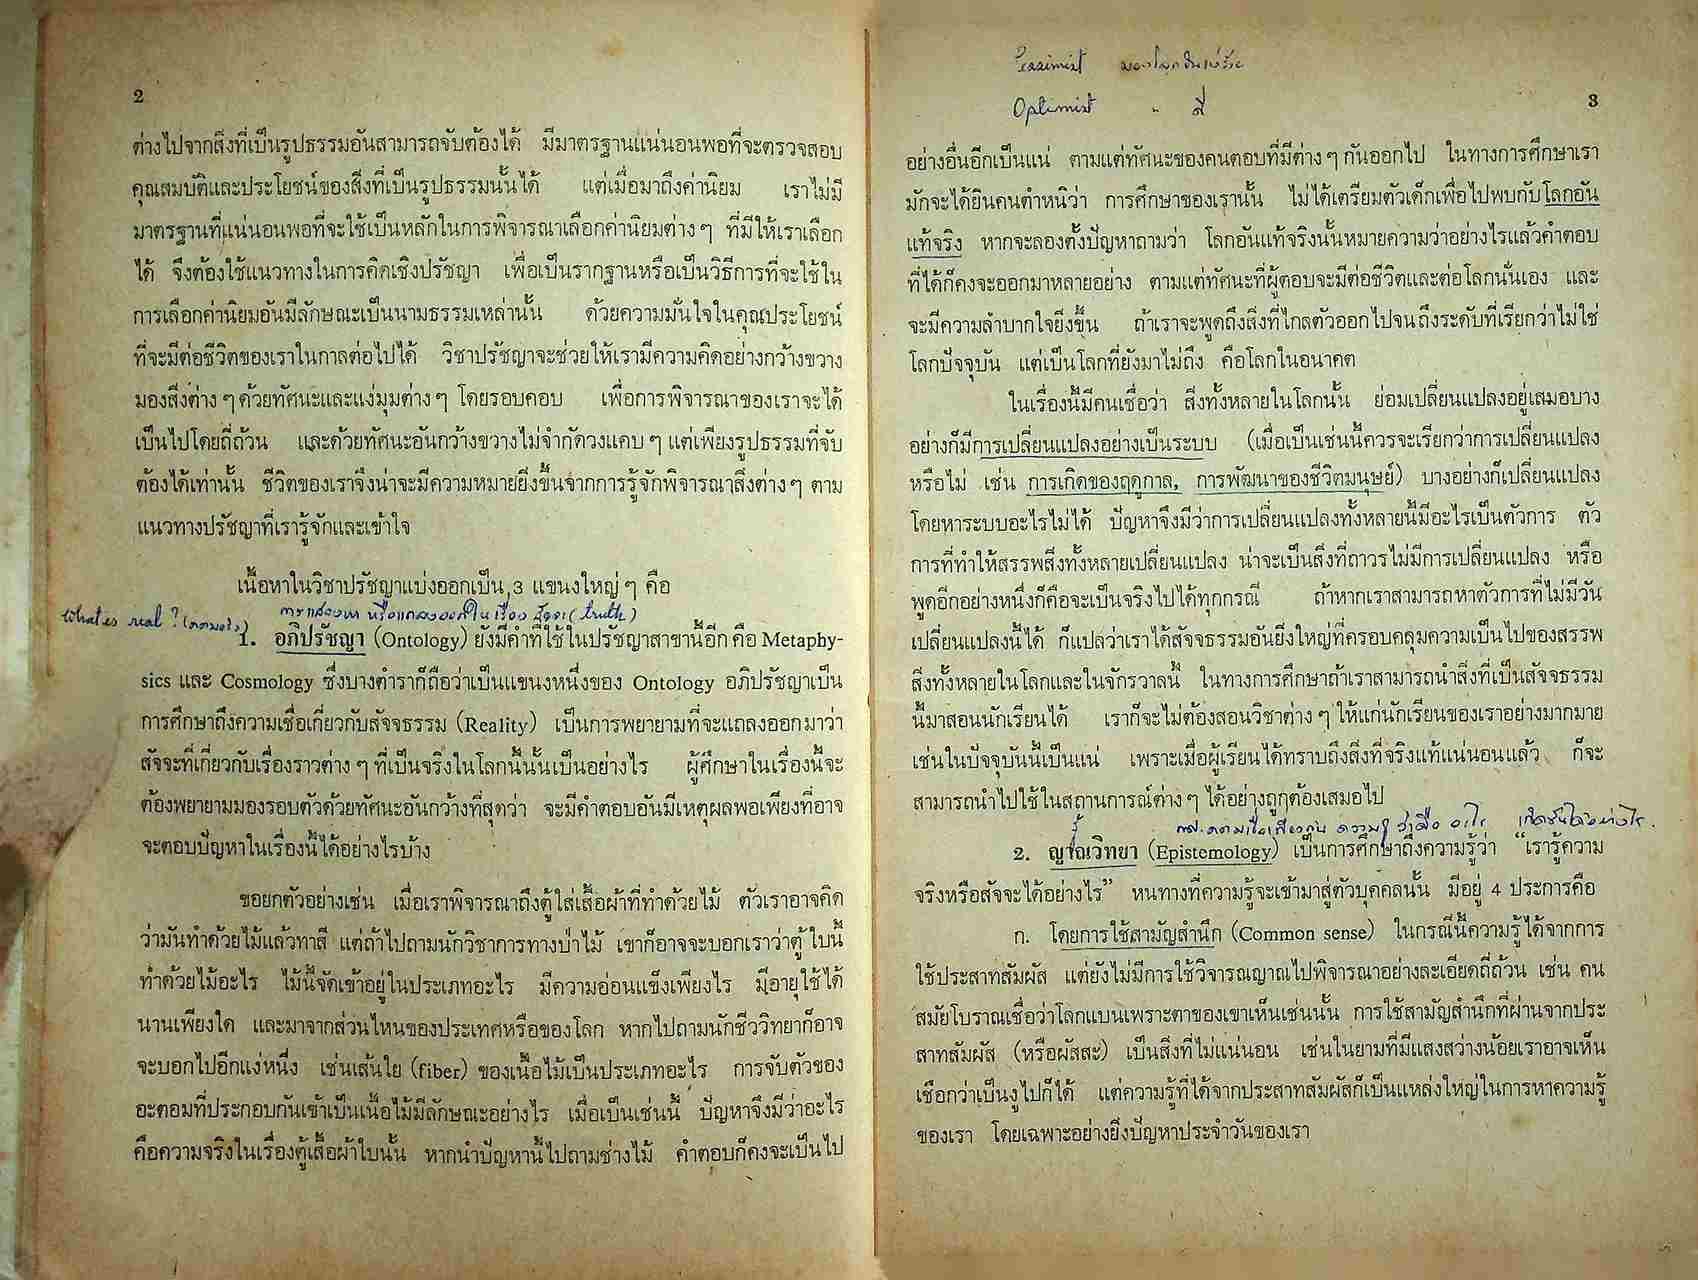 2
ต่างไปจากสิ่งที่เป็นรูปธรรมอันสามารถจับต้องได้ มีมาตรฐานแน่นอนพอที่จะตรวจสอบ
คุณสมบัติและประโยชน์ของสิ่งที่เป็นรูปธรรมนั้นได้ แต่เมื่อมาถึงค่านิยม เราไม่มี
มาตรฐานที่แน่นอนพอที่จะใช้เป็นหลักในการพิจารณาเลือกค่านิยมต่าง ๆ ที่มีให้เราเลือก
ได้ จึงต้องใช้แนวทางในการคิดเชิงปรัชญา เพื่อเป็นรากฐานหรือเป็นวิธีการที่จะใช้ใน
การเลือกค่านิยมอันมีลักษณะเป็นนามธรรมเหล่านั้น ด้วยความมั่นใจในคุณประโยชน์
ที่จะมีต่อชีวิตของเราในกาลต่อไปได้ วิชาปรัชญาจะช่วยให้เรามีความคิดอย่างกว้างขวาง
มองสิ่งต่าง ๆ ด้วยทัศนะและแง่มุมต่าง ๆ โดยรอบคอบ เพื่อการพิจารณาของเราจะได้
เป็นไปโดยถี่ถ้วน และด้วยทัศนะอันกว้างขวางไม่จำกัดวงแคบ ๆ แต่เพียงรูปธรรมที่จับ
ต้องได้เท่านั้น ชีวิตของเราจึงน่าจะมีความหมายยิ่งขึ้นจากการรู้จักพิจารณาสิ่งต่าง ๆ ตาม
แนวทางปรัชญาที่เรารู้จักและเข้าใจ
เนื้อหาในวิชาปรัชญาแบ่งออกเป็น 3 แขนงใหญ่ ๆ คือ
What is real ? (ความจริง) การแสวงหา หรือแถลงออกในเรื่อง (truth)
1. อภิปรัชญา (Ontology) ยังมีคำที่ใช้ในปรัชญาสาขานี้อีก คือ Metaphy-
sics และ Cosmology ซึ่งบางตำราก็ถือว่าเป็นแขนงหนึ่งของ Ontology อภิปรัชญาเป็น
การศึกษาถึงความเชื่อเกี่ยวกับสัจจธรรม (Reality) เป็นการพยายามที่จะแถลงออกมาว่า
สัจจะที่เกี่ยวกับเรื่องราวต่าง ๆ ที่เป็นจริงในโลกนี้นั้นเป็นอย่างไร ผู้ศึกษาในเรื่องนี้จะ
ต้องพยายามมองรอบตัวด้วยทัศนะอันกว้างที่สุดว่า จะมีคำตอบอันมีเหตุผลพอเพียงที่อาจ
จะตอบปัญหาในเรื่องนี้ได้อย่างไรบ้าง
ขอยกตัวอย่างเช่น เมื่อเราพิจารณาถึงตู้ใส่เสื้อผ้าที่ทำด้วยไม้ ตัวเราอาจคิด
ว่ามันทำด้วยไม้แล้วทาสี แต่ถ้าไปถามนักวิชาการทางป่าไม้ เขาก็อาจจะบอกเราว่าตู้ ใบนี้
ทำด้วยไม้อะไร ไม้นี้จัดเข้าอยู่ในประเภทอะไร มีความอ่อนแข็งเพียงไร มีอายุใช้ได้
นานเพียงใด และมาจากส่วนไหนของประเทศหรือของโลก หากไปถามนักชีววิทยาก็อาจ
จะบอกไปอีกแง่หนึ่ง เช่นเส้นใย (fiber) ของเนื้อไม้เป็นประเภทอะไร การจับตัวของ
อะตอมที่ประกอบกันเข้าเป็นเนื้อไม้มีลักษณะอย่างไร เมื่อเป็นเช่นนี้ ปัญหาจึงมีว่าอะไร
คือความจริงในเรื่องตู้เสื้อผ้าใบนั้น หากนำปัญหานี้ไปถามช่างไม้ คำตอบก็คงจะเป็นไป
Pessimist มองโลกในแง่ร้าย
Optimist " ดี
3
อย่างอื่นอีกเป็นแน่ ตามแต่ทัศนะของคนตอบที่มีต่าง ๆ กันออกไป ในทางการศึกษาเรา
มักจะได้ยินคนตำหนิว่า การศึกษาของเรานั้น ไม่ได้เตรียมตัวเด็กเพื่อไปพบกับโลกอัน
แท้จริง หากจะลองตั้งปัญหาถามว่า โลกอันแท้จริงนั้นหมายความว่าอย่างไรแล้วคำตอบ
ที่ได้ก็คงจะออกมาหลายอย่าง ตามแต่ทัศนะที่ผู้ตอบจะมีต่อชีวิตและต่อโลกนั่นเอง และ
จะมีความลำบากใจยิ่งขึ้น ถ้าเราจะพูดถึงสิ่งที่ไกลตัวออกไปจนถึงระดับที่เรียกว่าไม่ใช่
โลกปัจจุบัน แต่เป็นโลกที่ยังมาไม่ถึง คือโลกในอนาคต
ในเรื่องนี้มีคนเชื่อว่า สิ่งทั้งหลายในโลกนั้น ย่อมเปลี่ยนแปลงอยู่เสมอบาง
อย่างก็มีการเปลี่ยนแปลงอย่างเป็นระบบ (เมื่อเป็นเช่นนี้ควรจะเรียกว่าการเปลี่ยนแปลง
หรือไม่ เช่น การเกิดของฤดูกาล, การพัฒนาของชีวิตมนุษย์) บางอย่างก็เปลี่ยนแปลง
โดยหาระบบอะไรไม่ได้ ปัญหาจึงมีว่าการเปลี่ยนแปลงทั้งหลายนี้มีอะไรเป็นตัวการ ตัว
การที่ทำให้สรรพสิ่งทั้งหลายเปลี่ยนแปลง น่าจะเป็นสิ่งที่ถาวรไม่มีการเปลี่ยนแปลง หรือ
พูดอีกอย่างหนึ่งก็คือจะเป็นจริงไปได้ทุกกรณี ถ้าหากเราสามารถหาตัวการที่ไม่มีวัน
เปลี่ยนแปลงนี้ได้ ก็แปลว่าเราได้สัจจธรรมอันยิ่งใหญ่ที่ครอบคลุมความเป็นไปของสรรพ
สิ่งทั้งหลายในโลกและในจักรวาลนี้ ในทางการศึกษาถ้าเราสามารถนำสิ่งที่เป็นสัจจธรรม
นี้มาสอนนักเรียนได้ เราก็จะไม่ต้องสอนวิชาต่าง ๆ ให้แก่นักเรียนของเราอย่างมากมาย
เช่นในปัจจุบันนี้เป็นแน่ เพราะเมื่อผู้เรียนได้ทราบถึงสิ่งที่จริงแท้แน่นอนแล้ว ก็จะ
สามารถนำไปใช้ในสถานการณ์ต่าง ๆ ได้อย่างถูกต้องเสมอไป
รู้ ความเชื่อเกี่ยวกับ ความรู้ ว่าคือ อะไร เกิดขึ้นได้อย่างไร.
2. ญาณวิทยา (Epistemology) เป็นการศึกษาถึงความรู้ว่า “เรารู้ความ
จริงหรือสัจจะได้อย่างไร” หนทางที่ความรู้จะเข้ามาสู่ตัวบุคคลนั้น มีอยู่ 4 ประการคือ
ก. โดยการใช้สามัญสำนึก (Common sense) ในกรณีนี้ความรู้ได้จากการ
ใช้ประสาทสัมผัส แต่ยังไม่มีการใช้วิจารณญาณไปพิจารณาอย่างละเอียดถี่ถ้วน เช่น คน
สมัยโบราณเชื่อว่าโลกแบนเพราะตาของเขาเห็นเช่นนั้น การใช้สามัญสำนึกที่ผ่านจากประ
สาทสัมผัส (หรือผัสสะ) เป็นสิ่งที่ไม่แน่นอน เช่นในยามที่มีแสงสว่างน้อยเราอาจเห็น
เชือกว่าเป็นงูไปก็ได้ แต่ความรู้ที่ได้จากประสาทสัมผัสก็เป็นแหล่งใหญ่ในการหาความรู้
ของเรา โดยเฉพาะอย่างยิ่งปัญหาประจำวันของเรา